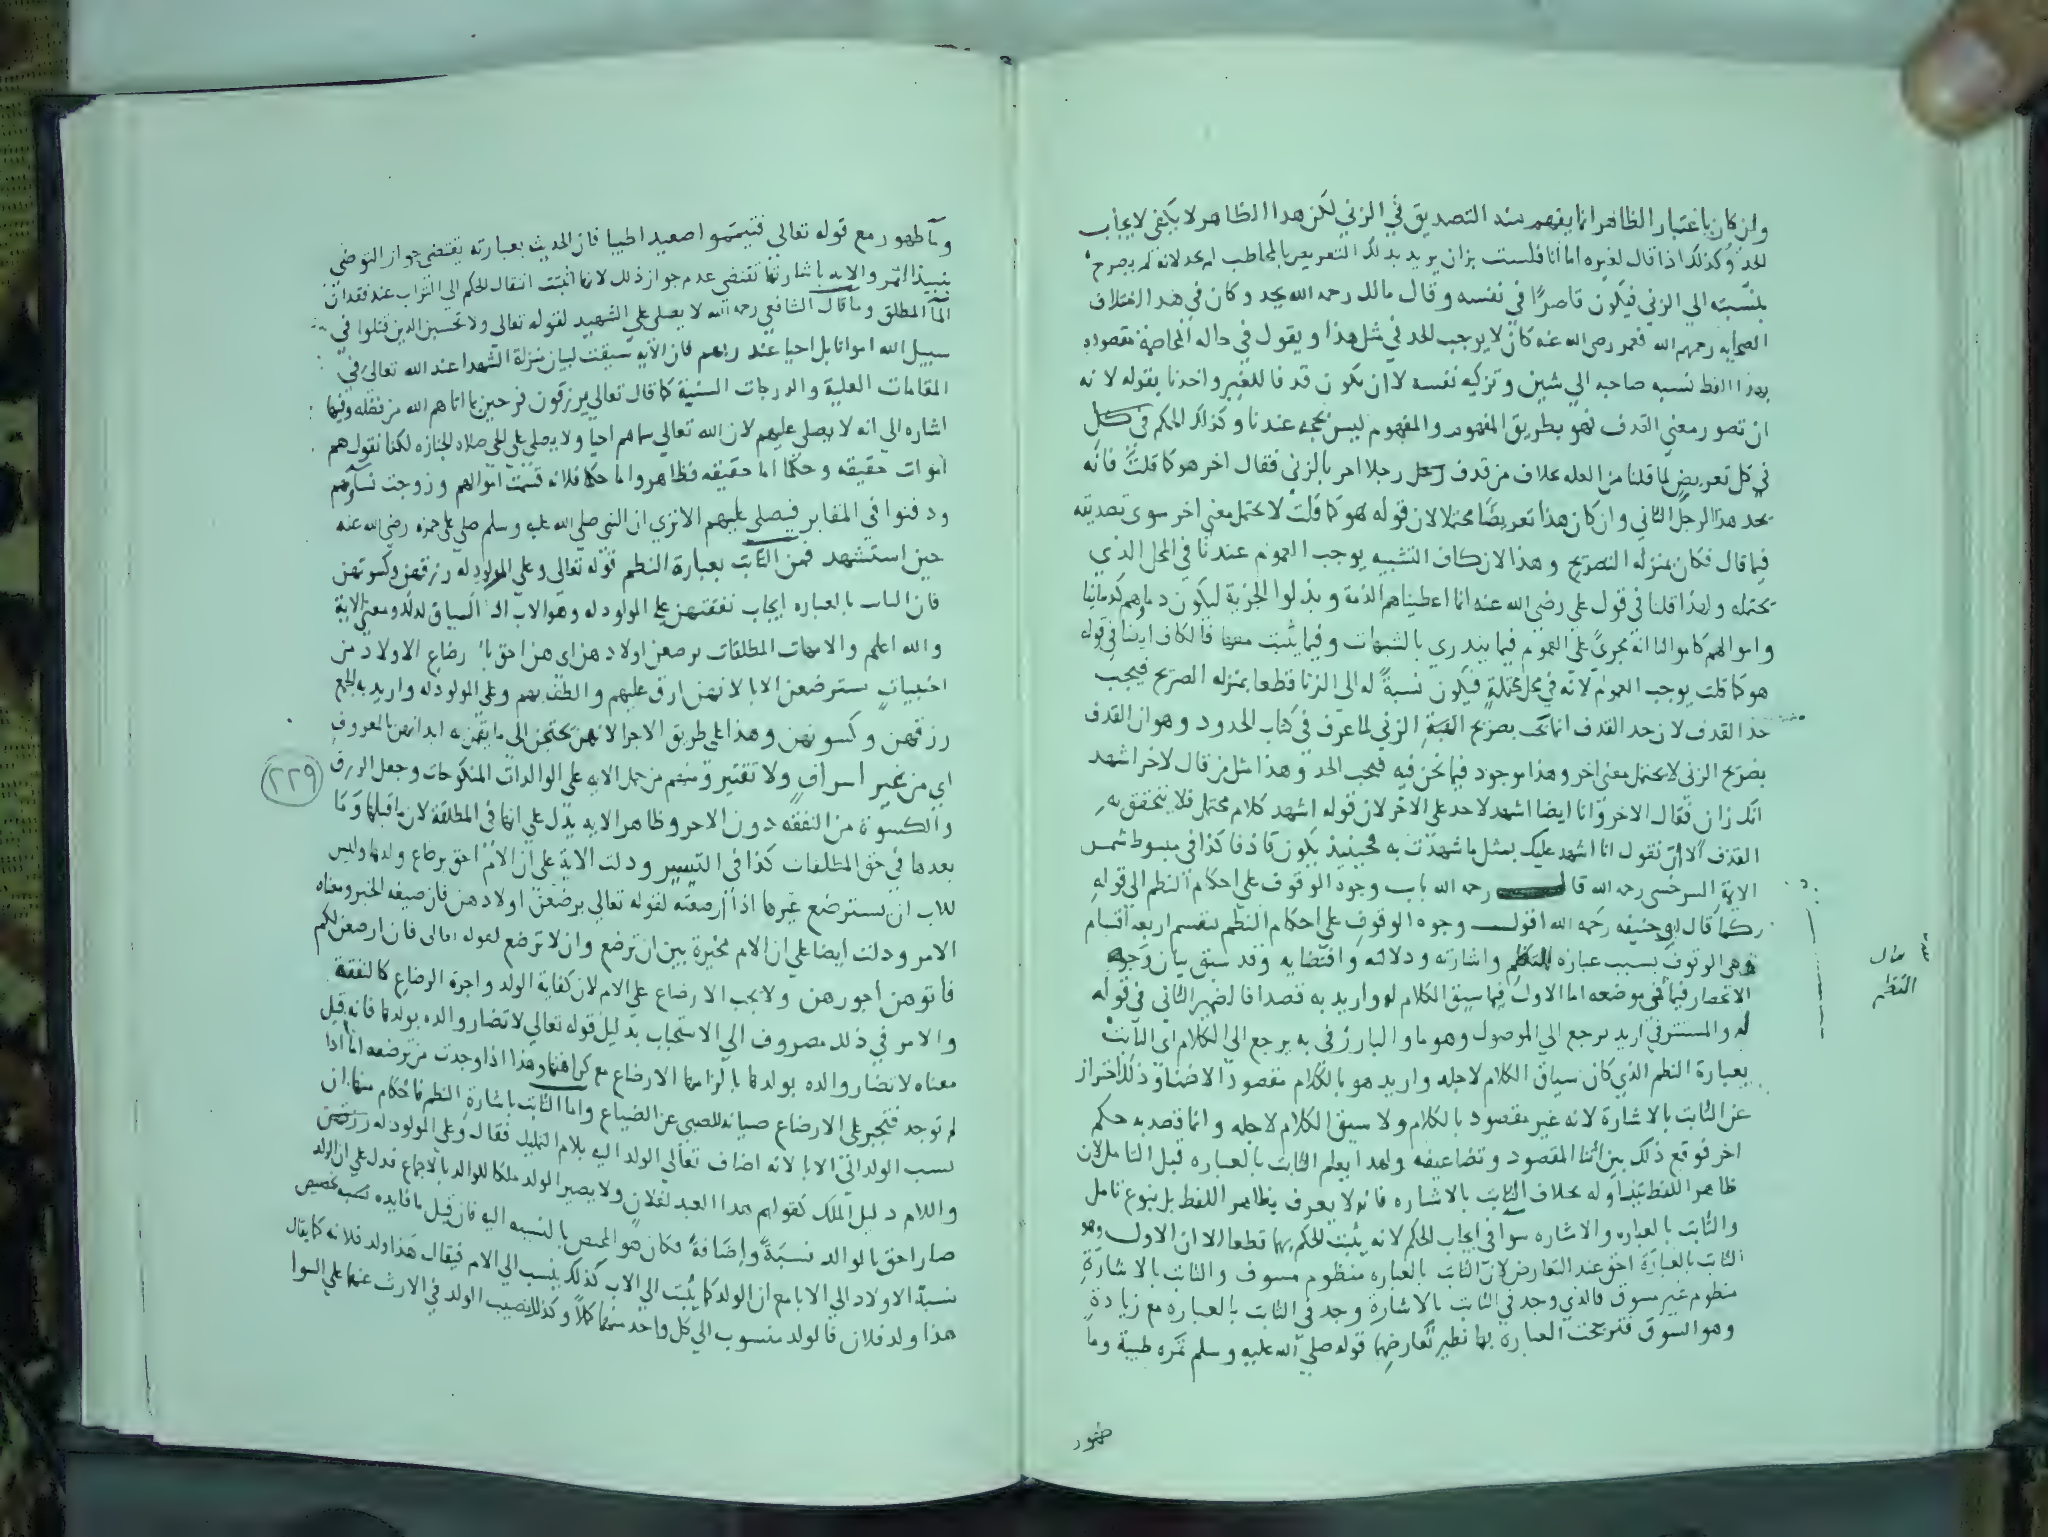 وان كان باعتبار الظاهر انما يفهم منه التصديق في الزني لكن هذا الظاهر لا يكفي لايجاب
الحد وكذلك اذا قال لغيره اما انا فلست بزان يريد بذلك التعريض بالمخاطب لم يحد لانه لم يصرح
بنسبته الي الزني فيكون قاصرا في نفسه وقال مالك رحمه الله يحد وكان في هذا اختلاف
الصحابه رحمهم الله فعمر رضي الله عنه كان لا يوجب الحد في مثل هذا ويقول في حاله المخاصمة مقصوده
بهذا اللفظ نسبه صاحبه الي شين وتزكيه نفسه لا ان يكون قدفا للغير واخدنا بقوله لانه
ان تصور معني القدف فهو بطريق المفهوم والمفهوم ليس بحجه عندنا وكذلك الحكم في كل
في كل تعريض لما قلنا من العله بخلاف من قدف رجل رجلا اخر بالزني فقال اخر هو كما قلت فانه
يحد هذا الرجل الثاني وان كان هذا تعريضا محتملا لان قوله هو كما قلت لا يحتمل معني اخر سوى تصديقه
فيما قال فكان بمنزله التصريح وهذا لان كاف التشبيه يوجب العموم عندنا في المحل الذي
يحتمله ولهذا قلنا في قول علي رضي الله عنه انما اعطيناهم الذمة وبذلوا الجزية ليكون دماوهم كدمائنا
واموالهم كاموالنا انه مجرى علي العموم فيما يندري بالشبهات وفيما يثبت معها فالكاف ايضا في قوله
هو كما قلت يوجب العموم لانه في محل محتملة فيكون نسبة له الي الزنا قطعا بمنزله الصريح فيجب
حد القدف لان حد القدف انما يجب بصريح الزني لما عرف في كتاب الحدود وهو ان القدف
بصريح الزني لا يحتمل معني اخر وهذا موجود فيما نحن فيه فيجب الحد وهذا مثل من قال لاخر اشهد
انك زان فقال الاخر وانا ايضا اشهد لا حد علي الاخر لان قوله اشهد كلام محتمل فلا يتحقق به
القذف الا ان يقول انا اشهد عليك بمثل ما شهدت به فحينيذ يكون قاذفا كذا في مبسوط شمس
الايمة السرخسي رحمه الله قال رحمه الله باب وجوه الوقوف علي احكام النظم الي قوله
كما قال ابو حنيفه رحمه الله اقول وجوه الوقوف علي احكام النظم ينقسم اربعة اقسام
وهي الوقوف بسبب عباره النظم واشارته ودلالته واقتضايه وقد سبق بيان وجوه
الانحصار فيما في موضعه اما الاول فما سيق الكلام له واريد به قصدا فالضمير الثاني في قوله
له والمستتر في اريد يرجع الي الموصول وهو ما والبارز في به يرجع الي الكلام اي الثابت
بعبارة النظم الذي كان سياق الكلام لاجله واريد هو بالكلام مقصودا وذلك احتراز
عن الثابت بالاشارة لانه غير مقصود بالكلام ولا سيق الكلام لاجله وانما قصد به حكم
اخر فوقع ذلك بين اثنا المقصود وتضاعيفه ولهذا يعلم الثابت بالعباره قبل التامل لان
ظاهر اللفظ يتناوله بخلاف الثابت بالاشاره فانه لا يعرف بظاهر اللفظ بل بنوع تامل
والثابت بالعباره والاشاره سوا في ايجاب الحكم لانه يثبت الحكم بهما قطعا الا ان الاول وهو
الثابت بالعبارة احق عند التعارض لان الثابت بالعباره منظوم مسوف والثابت بالاشارة
منظوم غير مسوق فالذي وجد في الثابت بالاشارة وجد في الثابت بالعباره مع زيادة
وهو السوق فترجحت العبارة بها نظير تعارضهما قوله صلي الله عليه وسلم تمرة طيبة وما
طهور
مثال
النظم
وما طهور مع قوله تعالي فتيمموا صعيدا طيبا فان الحديث بعبارته يقتضي جواز التوضي
بنبيذ التمر والايه باشارتها تقتضي عدم جواز ذلك لانها اثبتت انتقال الحكم الي التراب عند فقدان
الما المطلق وما قال الشافعي رحمه الله لا يصلي علي الشهيد لقوله تعالي ولا تحسبن الذين قتلوا في
سبيل الله امواتا بل احيا عند ربهم فان الآيه سيقت لبيان منزلة الشهدا عند الله تعالي في
المقامات العلية والدرجات السنية كما قال تعالي يرزقون فرحين بما اتاهم الله من فضله وفيها
اشاره الي انه لا يصلي عليهم لان الله تعالي سماهم احيا ولا يصلي علي الحي صلاة الجنازه لكنا نقول هم
اموات حقيقه وحكما اما حقيقه فظاهر واما حكما فلانه قسمت اموالهم وزوجت نساؤهم
ودفنوا في المقابر فيصلي عليهم الا تري ان النبي صلي الله عليه وسلم صلي علي حمزه رضي الله عنه
حين استشهد فمن الثابت بعبارة النظم قوله تعالي وعلي المولود له رزقهن وكسوتهن
فان الثابت بالعباره ايجاب نفقتهن علي المولود له وهو الاب السياق لذلك ومعني الاية
والله اعلم والامهات المطلقات يرضعن اولادهن اي هن احق بان رضاع الاولاد من
اجنبيات يسترضعن الابا لانهن ارق عليهم والطف بهم وعلي المولود له واريد به الجمع
رزقهن وكسوتهن وهذا علي طريق الاجر لانهن يحتجن الي ما يقمن به ابدانهن بالمعروف
اي من غير اسراف ولا تقتير ومنهم من حمل الايه علي الوالدات المنكوحات وجعل الرزق
والكسوة من النفقه دون الاجر وظاهر الايه يدل علي انها في المطلقة لان ما قبلها وما
بعدها في حق المطلقات كذا في التيسير ودلت الاية علي ان الام احق برضاع ولدها وليس
للاب ان يسترضع غيرها اذا ارضعته لقوله تعالي يرضعن اولادهن فان صيغه الخبر ومعناه
الامر ودلت ايضا علي ان الام مخيرة بين ان ترضع وان لا ترضع لقوله تعالي فان ارضعن لكم
فاتوهن اجورهن ولا يجب الارضاع علي الام لان كفاية الولد واجرة الرضاع كالنفقة
والامر في ذلك مصروف الي الاستحباب بدليل قوله تعالي لا تضار والده بولدها فانه قيل
معناه لا تضار والده بولدها بالزامها الارضاع مع كراهتها وهذا اذا وجدت من ترضعه اما اذا
لم توجد فتجبر علي الارضاع صيانه للصبي عن الضياع واما الثابت باشارة النظم فاحكام منها ان
نسب الولد الي الابا لانه اضاف تعالي الولد اليه بلام التمليك فقال وعلي المولود له رزقهن
واللام دليل الملك كقولهم هذا العبد لفلان ولا يصير الولد ملكا للوالد بالاجماع فدل علي ان الولد
صار احق بالوالد نسبة واضافة فكان هو المختص بالنسبه اليه فان قيل ما فايده تخصيص
نسبة الاولاد الي الابا مع ان الولد كما يثبت الي الاب كذلك ينسب الي الام فيقال هذا ولد فلانه كما يقال
هذا ولد فلان فالولد منسوب الي كل واحد منهما كملا وكذلك نصيب الولد في الارث عنهما علي السوا
٢٢٩